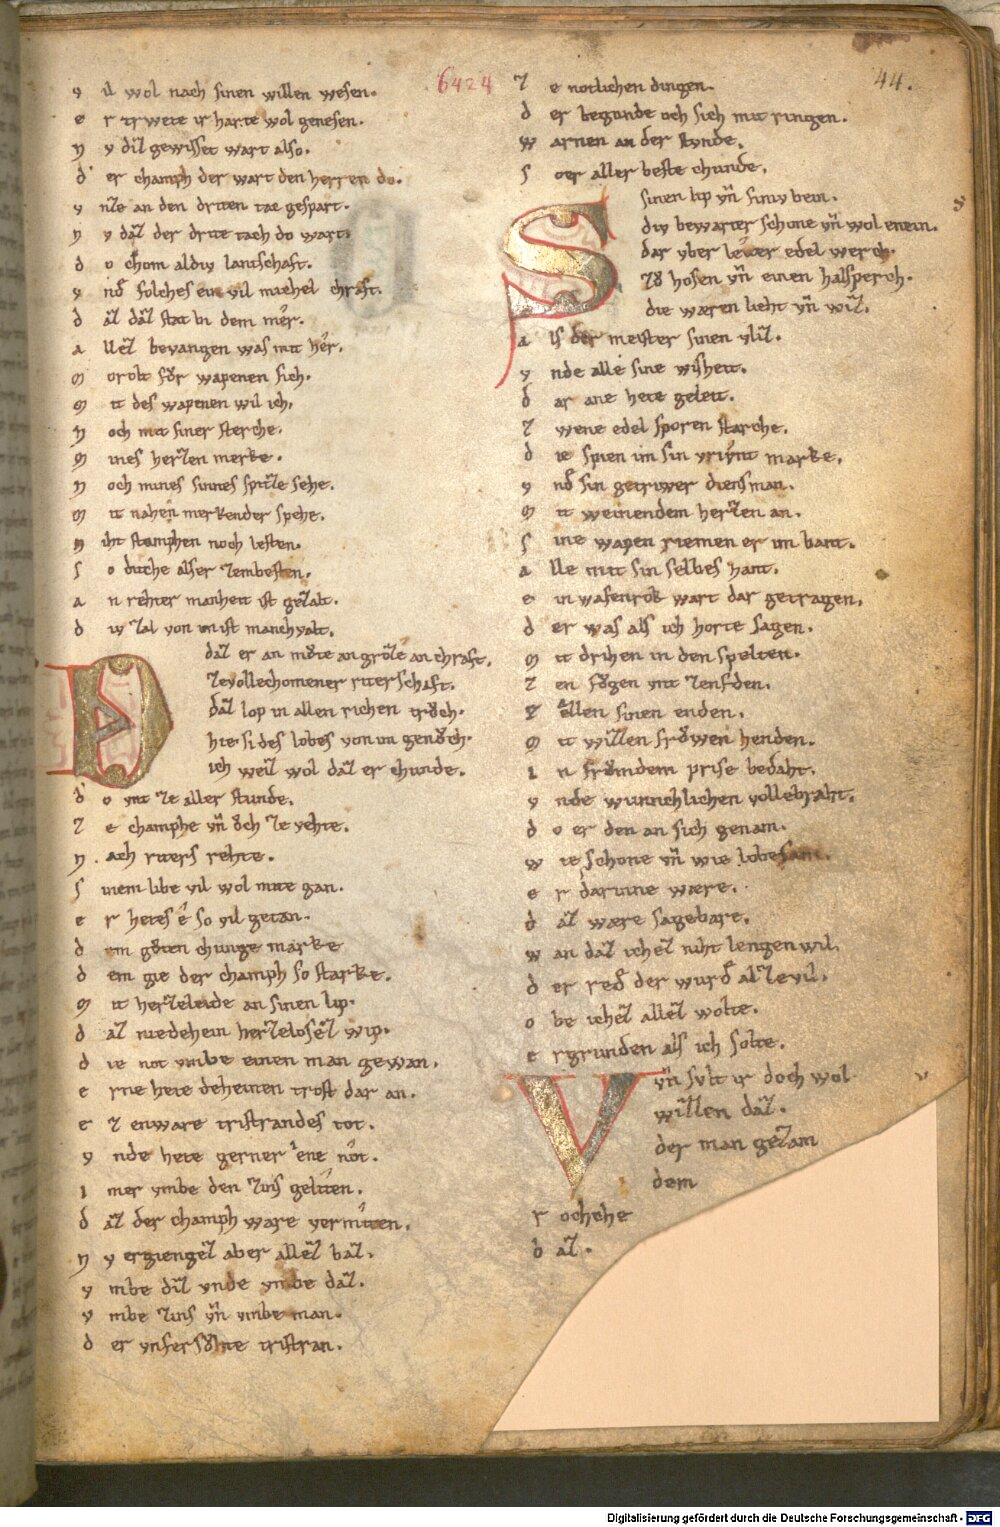 6424
44.
v il wol nach sinen willen wesen.
e r trwete ir harte wol genesen.
N v diz gewisset wart also.
d er champh der wart den herren do.
v nze an den driten tac gespart.
N v daz der drite tach do wart.
d o chom al div lantschaft.
v nd solhes ein vil michel chraft.
d az daz stat bi dem mer.
a llez bevangen was mit her.
M orolt fůr wapenen sich.
M it des wapenen wil ich.
N och mit siner sterche.
M ines herzen merke.
N och mines sinnes spitze sehe.
M it nahen merkender spehe.
N iht stumphen noch lesten.
S o diche als er zem besten.
a n rehter manheit ist gezalt.
d iv zal von im ist manchvalt.
D
daz er an můte an grôze an chraft.
ze vollechomener riterschaft.
daz lop in allen richen trůch.
hie si des lobes von im genůch.
ich weiz wol daz er chunde.
d o mit ze aller stunde.
z e champhe vn̄ ǒch ze vehte.
n ach riters rehte.
S inem libe vil wol mite gan.
e r hetes e so vil getan.
d em gůten chunige marke
d em gie der champh so starke.
M it herzeleide an sinen lip.
d az nie dehein herzelosez wip.
d ie not vmbe einen man gewan.
e rne hete deheinen trost dar an.
e z enware tristrandes tot.
v nde hete gerner ene not.
i mer vmbe den zins geliten.
d az der champh ware vermiten.
N v ergiengez aber allez baz.
v mbe diz vnde vmbe daz.
v mbe zins vn̄ vmbe man.
d er vnfersůhte tristran.
z e notlichen dingen.
d er begunde och sich mit ringen.
w arnen an der stunde.
s o er aller beste chunde.
S
sinen lip vn̄ siniv bein.
div bewarter schone vn̄ wol enein.
dar vber leiter edel werch.
zů hosen vn̄ einen halsperch.
die waren lieht vn̄ wiz.
a ls der meister sinen vliz.
v nde alle sine wisheit.
d ar ane hete geleit.
z wene edel sporen starche.
d ie spien im sin vriunt marke.
v nd sin getriwer diensman.
M it weinendem herzen an.
S ine wapen riemen er im bant.
a lle mit sin selbes hant.
e in wafenrok wart dar getragen.
d er was als ich horte sagen.
M it drihen in den spelten.
z en fůgen mit zenfden.
z allen sinen enden.
M it willen frǒwen henden.
i n frǒmdem prise bedaht.
v nde wunnchlichen vollebraht.
d o er den an sich genam.
w ie schone vn̄ wie lobesam.
e r darinne wære.
d az wære sagebare.
w an daz ichez niht lengen wil.
d er red der wurd al ze vil.
o be ichez allez wolte.
e rgrunden als ich solte.
V
vn̄ sult ir doch wol
wizzen daz.
der man gezam
dem
r ochche
b az.
Digitalisierung gefördert durch die Deutsche Forschungsgemeinschaft - DFG